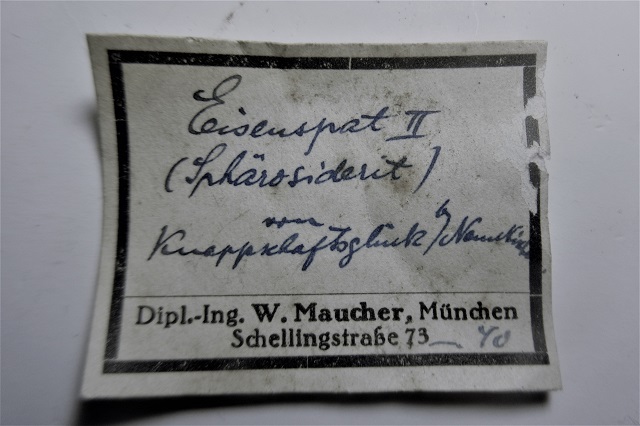 Eisenspat II
(Sphärosiderit)
von
Knappschaftsglück b/
Dipl.-Ing. W. Maucher, München
Schellingstraße 73 40